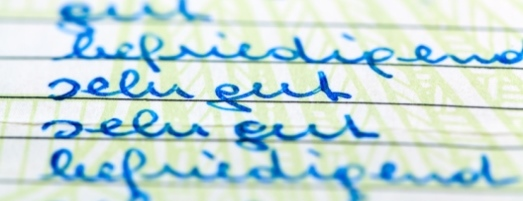 gut
befriedigend
sehr gut
sehr gut
befriedigend